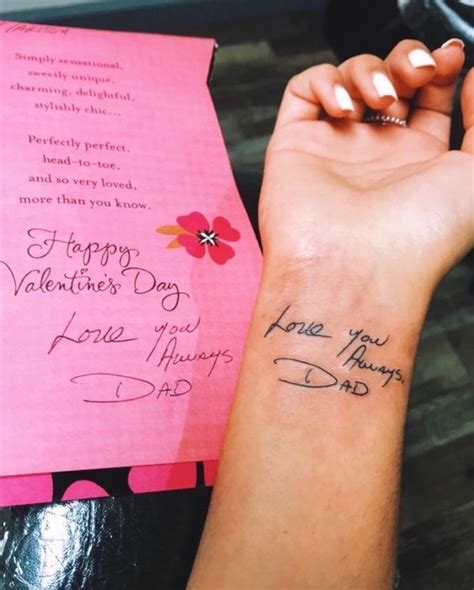 Simply sensational,
sweetly unique,
charming, delightful,
stylishly chic...
Perfectly perfect,
head-to-toe,
and so very loved,
more than you know.
Happy
Valentine's Day
Love you
Always,
Dad
Love you
Always,
Dad